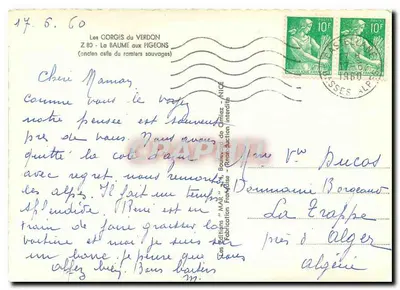 17. 6. 60
Les GORGES du VERDON
Z 80 - La BAUME aux PIGEONS
(ancien celle du ramiers sauvages)
10F 10F
1960
BASSES ALPES
Chère Maman
comme vous le voyez
notre pensée est souvent
près de vous. Nous avons
quitté la cote d'azur
avec regret, nous remontons
les alpes. Il fait un temps
splendide. René est en
train de faire graisser la
voiture et moi je suis sur
un banc, je pense que vous
allez bien. Bons baisers
m.
Les Editions "MAR" NICE
Fabrication Française - Reproduction interdite
CPArama
Mme Vve Ducos
Domaine Borgeaud
La Trappe
près d'Alger
Algérie